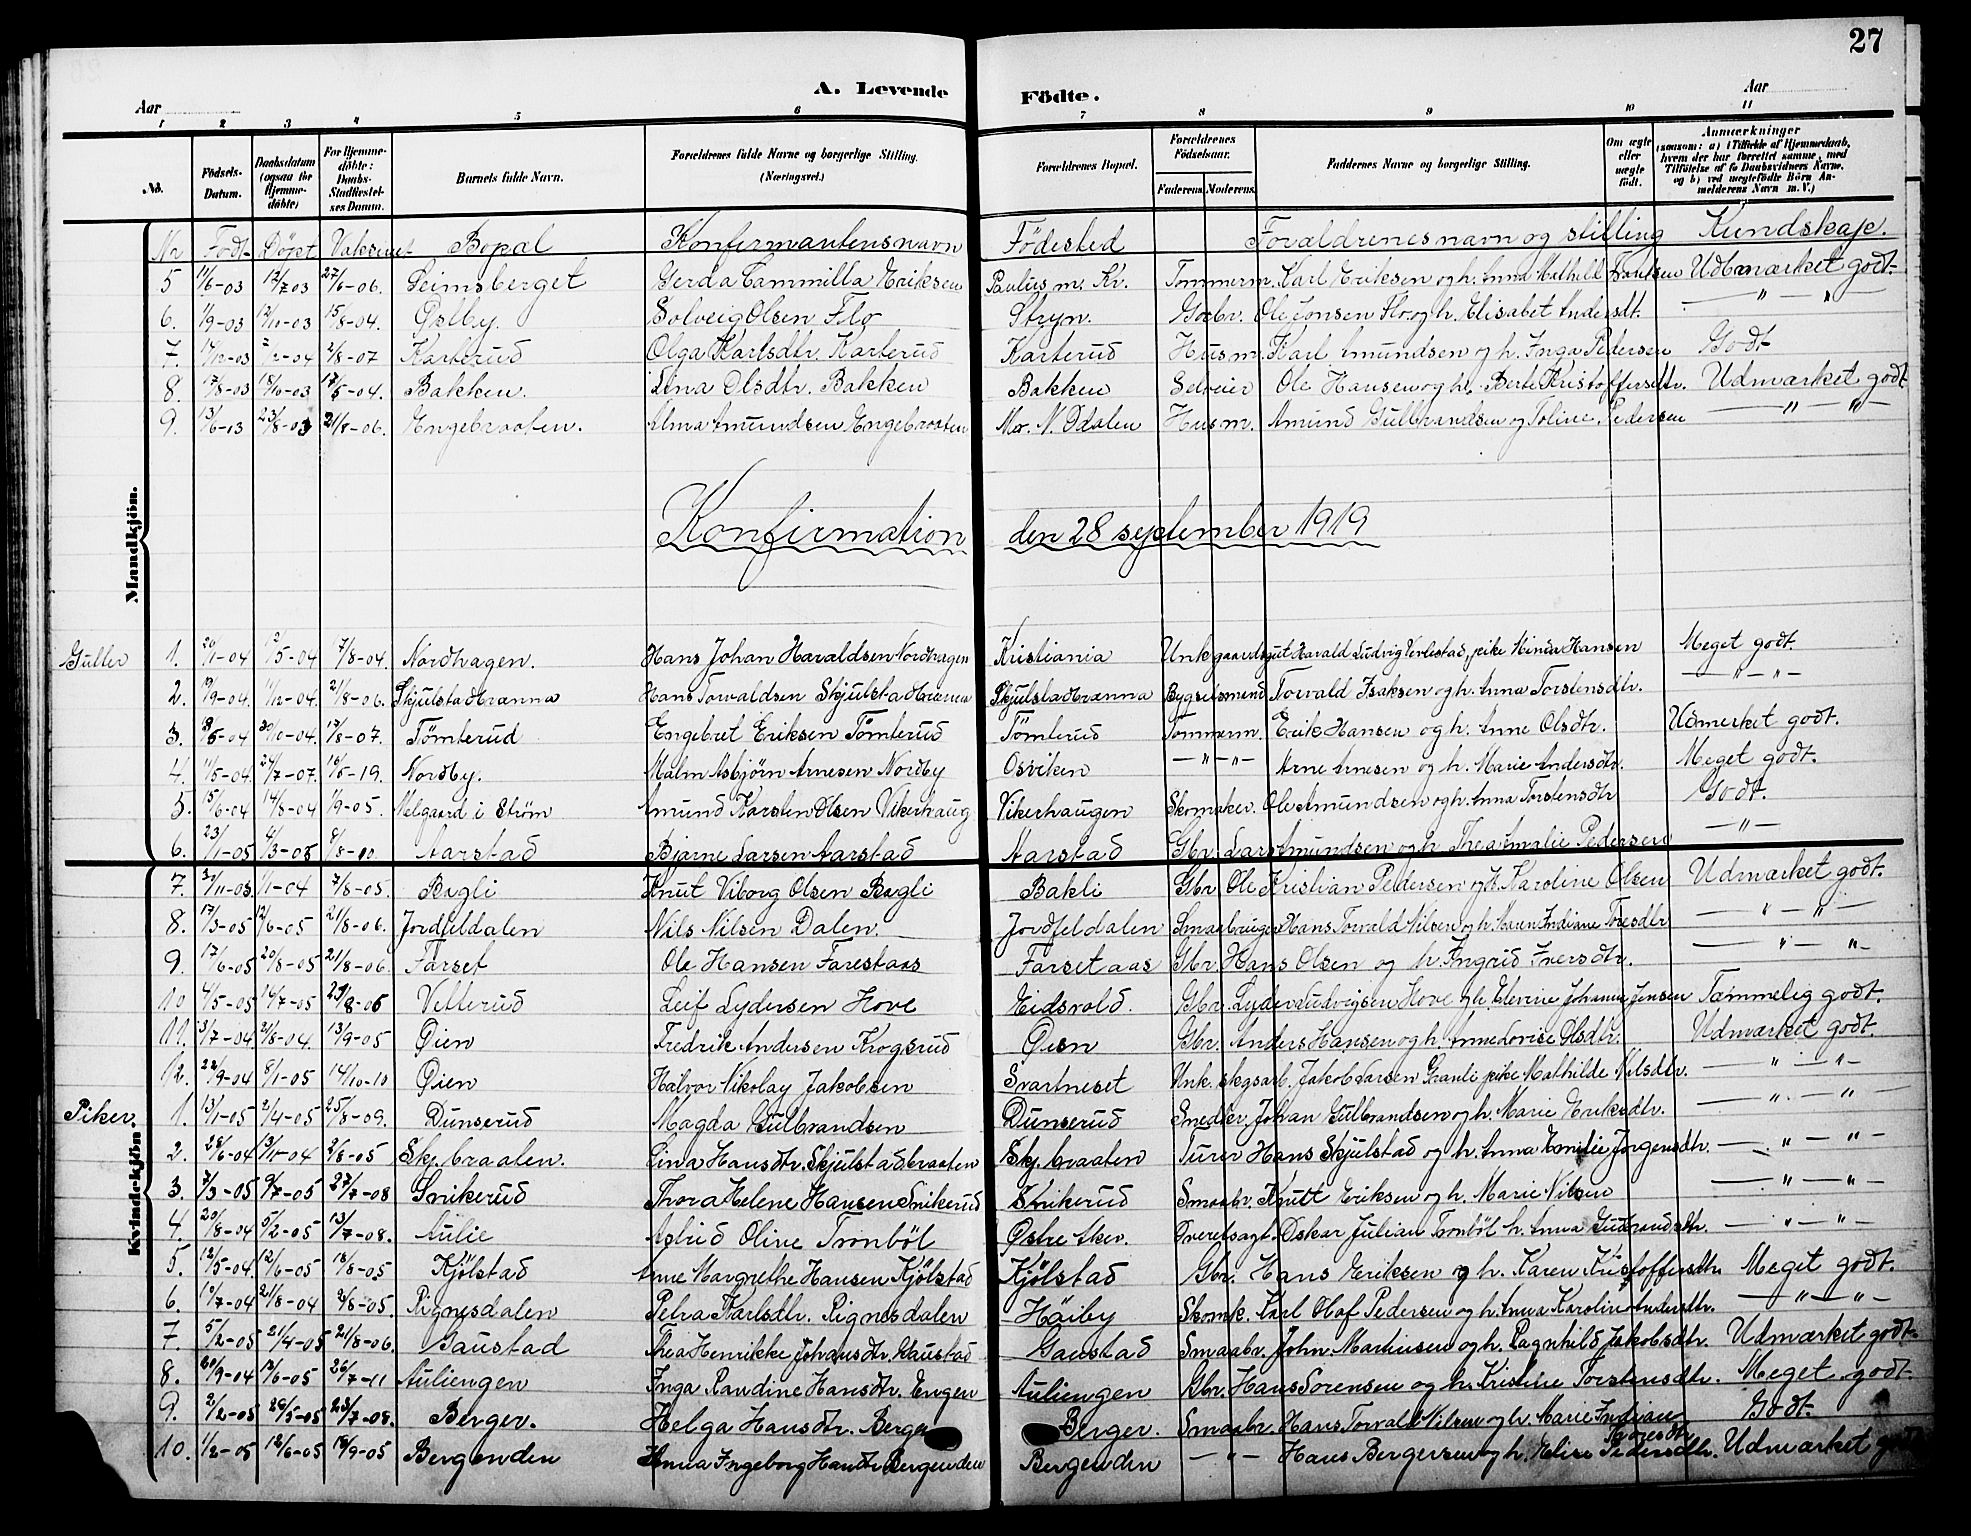 27
A. Levende Födte.
Aar
Aar
1 2 3 4 5 6 7 8 9 10 11
No. Födsels-Datum. Daabsdatum (ogsaa for Hjemme-döbte) For Hjemme-döbte: Daabs-Stadfæstel-ses Datum. Barnets fulde Navn. Forældrenes fulde Navne og borgerlige Stilling. (Næringsvei.) Forældrenes Bopæl. Forældrenes Födselsaar. Faderens. Moderens. Faddernes Navne og borgerlige Stilling. Om ægte eller uægte födt. Anmærkninger (saasom: a) i Tilfælde af Hjemmedaab, hvem der har forrettet samme, med Tilföielse af to Daabsvidners Navne, og b) ved uægtefödte Börn An-melderens Navn m. V.)
Nr Födt Döpt Vaksinert Bopæl Konfirmantens navn Födested Forældrenes navn og stilling Kundskap.
5 11/6-03 12/7 03 27/6-06. Seimsberget Gerda Cammilla Eriksen Paulus m. Kr. Tömmerm. Karl Eriksen og h. Anna Mathill Udmærket godt
6. 1/9-03 12/10-03 15/8-04. Östby. Solveig Olsen Flo Stryn. Gbr. Ole Jonsen Flo og h. Elisabet Andersdt. — " — " —
7. 14/12-03 2/2-04 2/8-07 Karterud Olga Karlsdtr. Karterud Karterud Husm. Karl Amundsen og h. Inga Pedersen Godt
8. 17/8-03 18/10-03 17/5-04. Bakken. Lina Olsdtr. Bakken Bakken Selveier Ole Hansen og h. Berte Kristoffersdtr. Udmærket godt
9. 13/6-03 23/8-03 21/8-06. Engebraaten. Alma Amundsen Engebraaten N. Odalen Husm. Amund Gulbrandsen og Toline Pedersen — " — " —
Mandkjön.
Konfirmation den 28 september 1919
Gutter 1. 20/1-04 12/5-04 17/8-04. Nordhagen. Hans Johan Haraldsen Nordhagen Kristiania Unk gaardsgut Harald Ludvig pike Minda Hansen Meget godt.
2. 19/9-04. 11/12-04. 21/8-06. Skjulstadbranna Hans Torvaldsen Skjulstadbranna Skjulstadbranna Bygselsmand Torvald Isaksen og h. Anna Torstensdtr. — " — " —
3. 18/5-04 30/10-04. 17/8-07. Tömterud Engebret Eriksen Tömterud Tömterud Tömmerm. Erik Hansen og h. Anne Olsdtr. Udmerket godt.
4. 11/5-04. 24/7-07. 16/5-19. Nordby. Malm Asbjörn Arnesen Nordby Osviken — " — " — Arne Arnesen og h. Marie Andersdtr. Meget godt.
5. 15/6-04 14/8-04 1/9-05. Melgaard i Ström Amund Karsten Olsen Vikerhaug Vikerhaugen Skomaker. Ole Amundsen og h. Anna Torstensdtr Godt.
6. 23/1-05 4/3-05 9/8-10. Aarstad Bjarne Larsen Aarstad Aarstad Gbr. Lars Amundsen og h. Thea Amalie Pedersen — " —
7. 27/11-03 1/1-04 7/8-05. Bagli Knut Viborg Olsen Bagli Bakli Gbr Ole Kristian Pedersen og h. Karoline Olsen Udmærket godt.
8. 17/3-05 12/6-05 21/8-06. Jordfeldalen Nils Nilsen Dalen. Jordfeldalen Smaabruiger Hans Torvald Nilsen og h. Maren Indiane Toresdtr — " — " —
9. 17/6-05 20/8-05 21/8-06. Farset Ole Hansen Farestaas Farsetaas Gbr. Hans Olsen og h. Ingrid Iversdtr. — " — " —
10 4/5-05 14/7-05 29/8-06 Velterud Leif Lydersen Hove Eidsvold. Gbr. Lyder Ludvigsen Hove og h. Elevine Johanne Jensen Tæmmelig godt.
11. 3/7-04 21/8-04. 13/9-05 Öien Fredrik Andersen Krogsrud Öien Gbr. Anders Hansen og h. Anne Lovise Olsdtr. Udmærket godt.
12. 22/9-04 8/1-05 14/10-10 Öien Halvor Nikolay Jakobsen Svartneset Unk. skgsarb. Jakob Larsen Granli pike Mathilde Nilsdtr. — " — " —
Piker. 1. 13/1-05 2/4-05 25/8-09. Dunserud Magda Gulbrandsen Dunserud Snedker Johan Gulbrandsen og h. Marie Eriksdtr. — " — "
2. 28/6-04 13/11-04 2/8-05 Skj. braaten. Lina Hansdtr. Skjulstadbraaten Skj. braaten Hans Skjulstad og h. Anna Emilie Jörgensdtr. — " — " —
3. 7/3-05 9/7-05 27/7-08 Snikerud Thora Helene Hansen Snikerud Snikerud Smaabr. Knutt Eriksen og h. Marie Nilsen — " — " —
4. 20/8-04 5/2-05 13/7-08. Aulie Astrid Oline Tronböl Östre Aker. Overetsagf. Oskar Julian Tronböl h. Anna Gudbrandsdtr. — " — " —
5. 12/5-04 12/6-05 18/8-05 Kjölstad Anne Margrethe Hansen Kjölstad Kjölstad Gbr. Hans Eriksen og h. Karen Kristoffersdtr. Meget godt.
6. 10/7-04 21/8-04 2/8-05. Rignesdalen Petra Karlsdtr. Rignesdalen Höiby Skomk. Karl Olaf Pedersen og h. Anna Karoline Andersdtr. — " — " —
7. 5/2-05 21/4-05 21/8-06. Gaustad Thea Henrikke Johansdtr. Gaustad Gaustad Smaabr. Johan Martinsen og h. Ragnhild Jakobsdtr. Udmærket godt.
8. 20/9-04 12/6-05 26/7-11 Auliengen Inga Randine Hansdtr. Engen Auliengen Gbr. Hans Sorensen og h. Kristine Torstensdtr. Meget godt.
9. 2/2-05 29/5-05 23/7-08. Berger. Helga Hansdtr. Berger Berger. Smaabr. Hans Torvald Nilsen og h. Marie Indiane Toresdtr Godt.
10. 1/2-05 12/6-05 19/9-05 Bergenden Anna Ingeborg Hansdtr Bergenden Bergenden — " — Hans Bergersen og h. Elise Pedersdtr. Udmærket godt
Kvindekjön